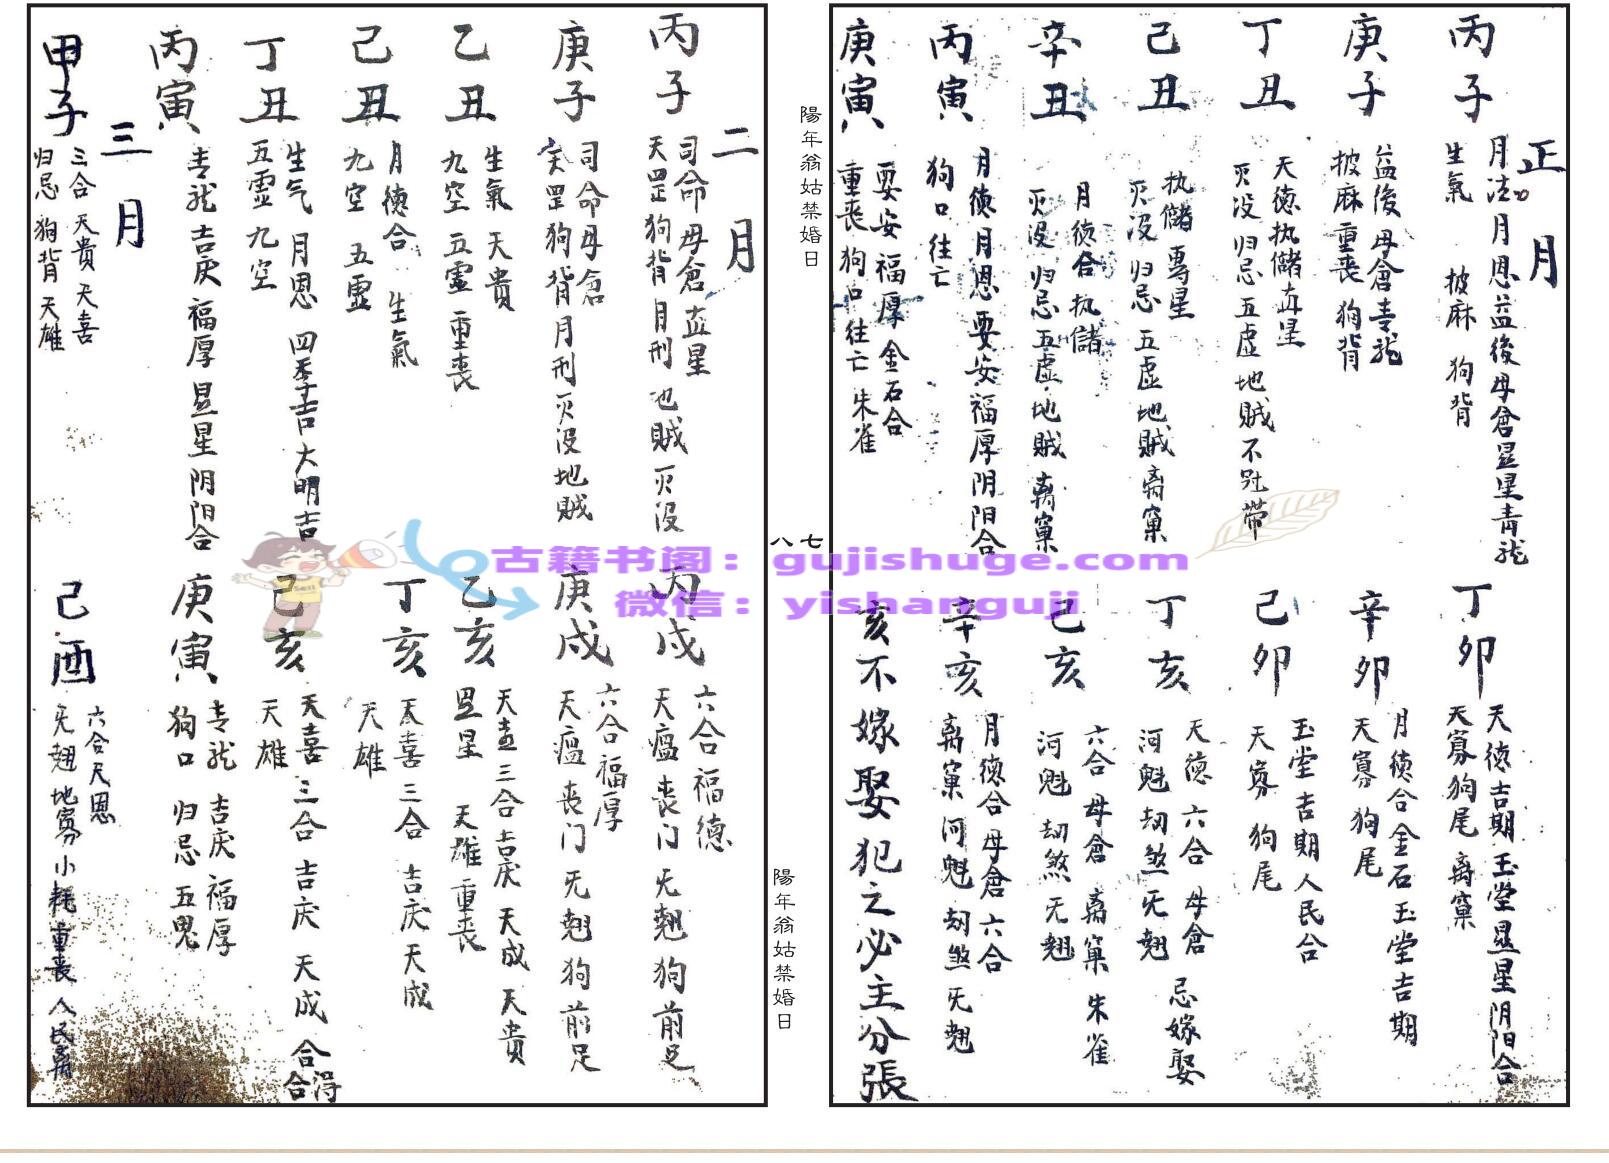 正月
丙子
月法 月恩益後母倉显星青龙
生氣 披麻 狗背
庚子
益後母倉青龙
披麻重丧 狗背
丁丑
天德执儲直星
灭没归忌五虚地贼不冠带
己丑
执儲專星
灭没归忌五虚地贼离窠
辛丑
月德合执儲
灭没归忌五虚地贼离窠
丙寅
月德月恩要安福厚阴阳合
狗口往亡
庚寅
要安福厚金石合
重丧狗口往亡朱雀
丁卯
天德吉期玉堂显星阴阳合
天寡狗尾离窠
辛卯
月德合金石玉堂吉期
天寡狗尾
己卯
玉堂吉期人民合
天寡狗尾
丁亥
天德六合母倉忌嫁娶
河魁劫煞无翘
己亥
六合母倉离窠朱雀
河魁劫煞无翘
辛亥
月德合母倉六合
离窠河魁劫煞无翘
亥不嫁娶犯之必主分張
陽年翁姑禁婚日
七八
陽年翁姑禁婚日
二月
丙子
司命母倉直星
天罡狗背月刑地贼灭没
庚子
司命母倉
天罡狗背月刑灭没地贼
乙丑
生氣天貴
九空五虚重丧
己丑
月德合生氣
九空五虚
丁丑
生气月恩四季吉大明吉
五虚九空
丙寅
青龙吉庆福厚显星阴阳合
丙戌
六合福德
天瘟丧门无翘狗前足
庚戌
六合福厚
天瘟丧门无翘狗前足
乙亥
天喜三合吉庆天成天貴
显星天雄重丧
丁亥
天喜三合吉庆天成
天雄
己亥
天喜三合吉庆天成合得合
天雄
庚寅
青龙吉庆福厚
狗口归忌五鬼
三月
甲子
三合天貴天喜
归忌狗背天雄
己酉
六合天恩
无翘地寡小耗重丧人民离
古籍书阁：gujishuge.com
微信：yishanguji